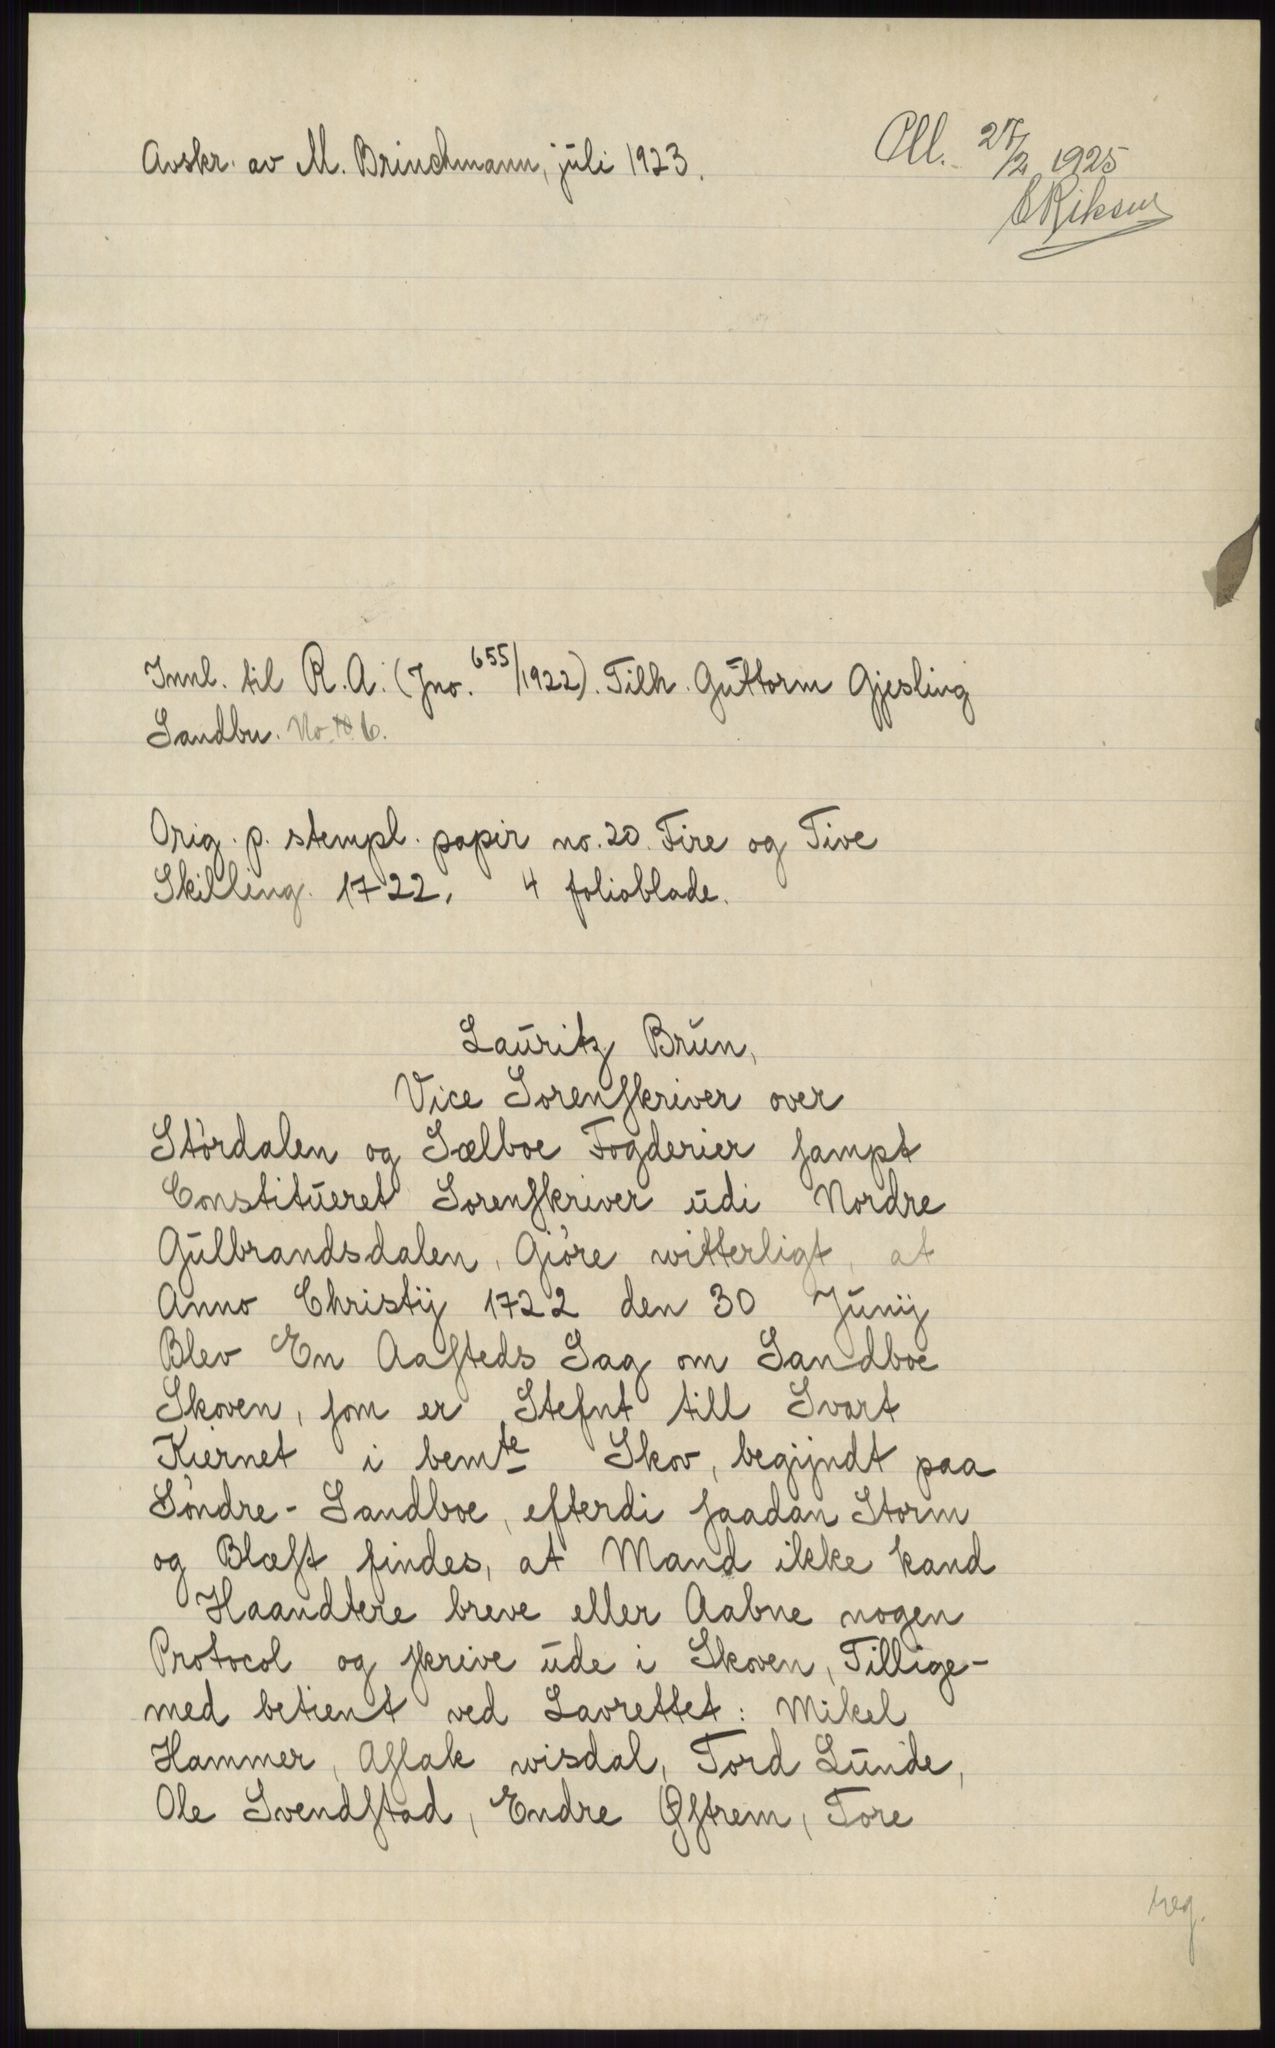 Avskr. av M. Brinchmann, juli 1923.
Cll. 27/2 1925
Innl. til R.A. (Jno. 655/1922). Tilh. Guttorm Gjesling
Sandbu. No. 6.
Orig. p. stempl. papir no. 20. Fire og Tive
Skilling. 1722. 4 folioblade.
Lauritz Brun,
Vice Sorenskriver over
Stördalen og Sælboe Fogderier sampt
Constitueret Sorenskriver udi Nordre
Gulbrandsdalen, Giöre witterligt, at
Anno Christij 1722 den 30 Junij
Blev En Aasteds Sag om Sandboe
Skoven, som er Stefnt till Svart
Kiernet i bemte Skov, begijndt paa
Söndre-Sandboe, efterdi saadan Storm
og Blæst findes, at Mand ikke kand
Haandtere breve eller Aabne nogen
Protocol og skrive ude i Skoven, Tillige-
med betient ved Lavrettet: Mikel
Hammer, Aslak wisdal, Tord Lunde,
Ole Svendstad, Endre Østrem, Tore
reg.